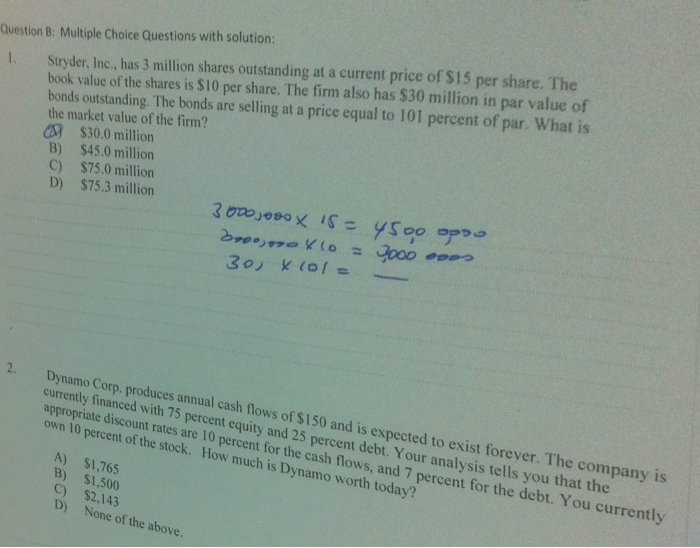 Question B: Multiple Choice Questions with solution:
1. Stryder, Inc., has 3 million shares outstanding at a current price of $15 per share. The
book value of the shares is $10 per share. The firm also has $30 million in par value of
bonds outstanding. The bonds are selling at a price equal to 101 percent of par. What is
the market value of the firm?
A) $30.0 million
B) $45.0 million
C) $75.0 million
D) $75.3 million
× 15 =
×10 =
× 101 =
2. Dynamo Corp. produces annual cash flows of $150 and is expected to exist forever. The company is
currently financed with 75 percent equity and 25 percent debt. Your analysis tells you that the
appropriate discount rates are 10 percent for the cash flows, and 7 percent for the debt. You currently
own 10 percent of the stock. How much is Dynamo worth today?
A) $1,765
B) $1,500
C) $2,143
D) None of the above.